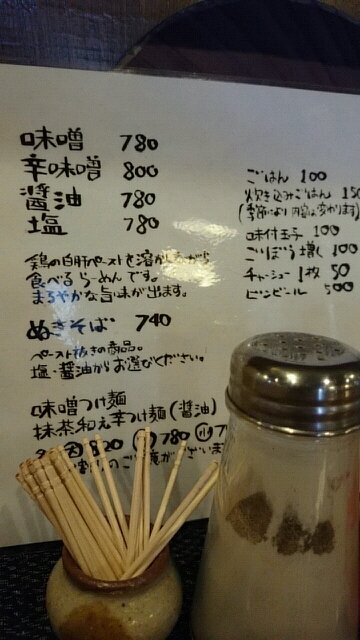 味噌 780
辛味噌 800
醤油 780
塩 780
鶏の白肝ペーストを溶かしながら
食べるらーめんです。
まろやかな旨味が出ます。
ぬきそば 740
ペースト抜きの商品。
塩・醤油からお選びください。
味噌つけ麺
抹茶和え辛つけ麺(醤油)
820 780
ごはん 100
炊き込みごはん 150
(季節により内容は変わります)
味付玉子 100
ごぼう増し 100
チャーシュー1枚 50
ビンビール 500